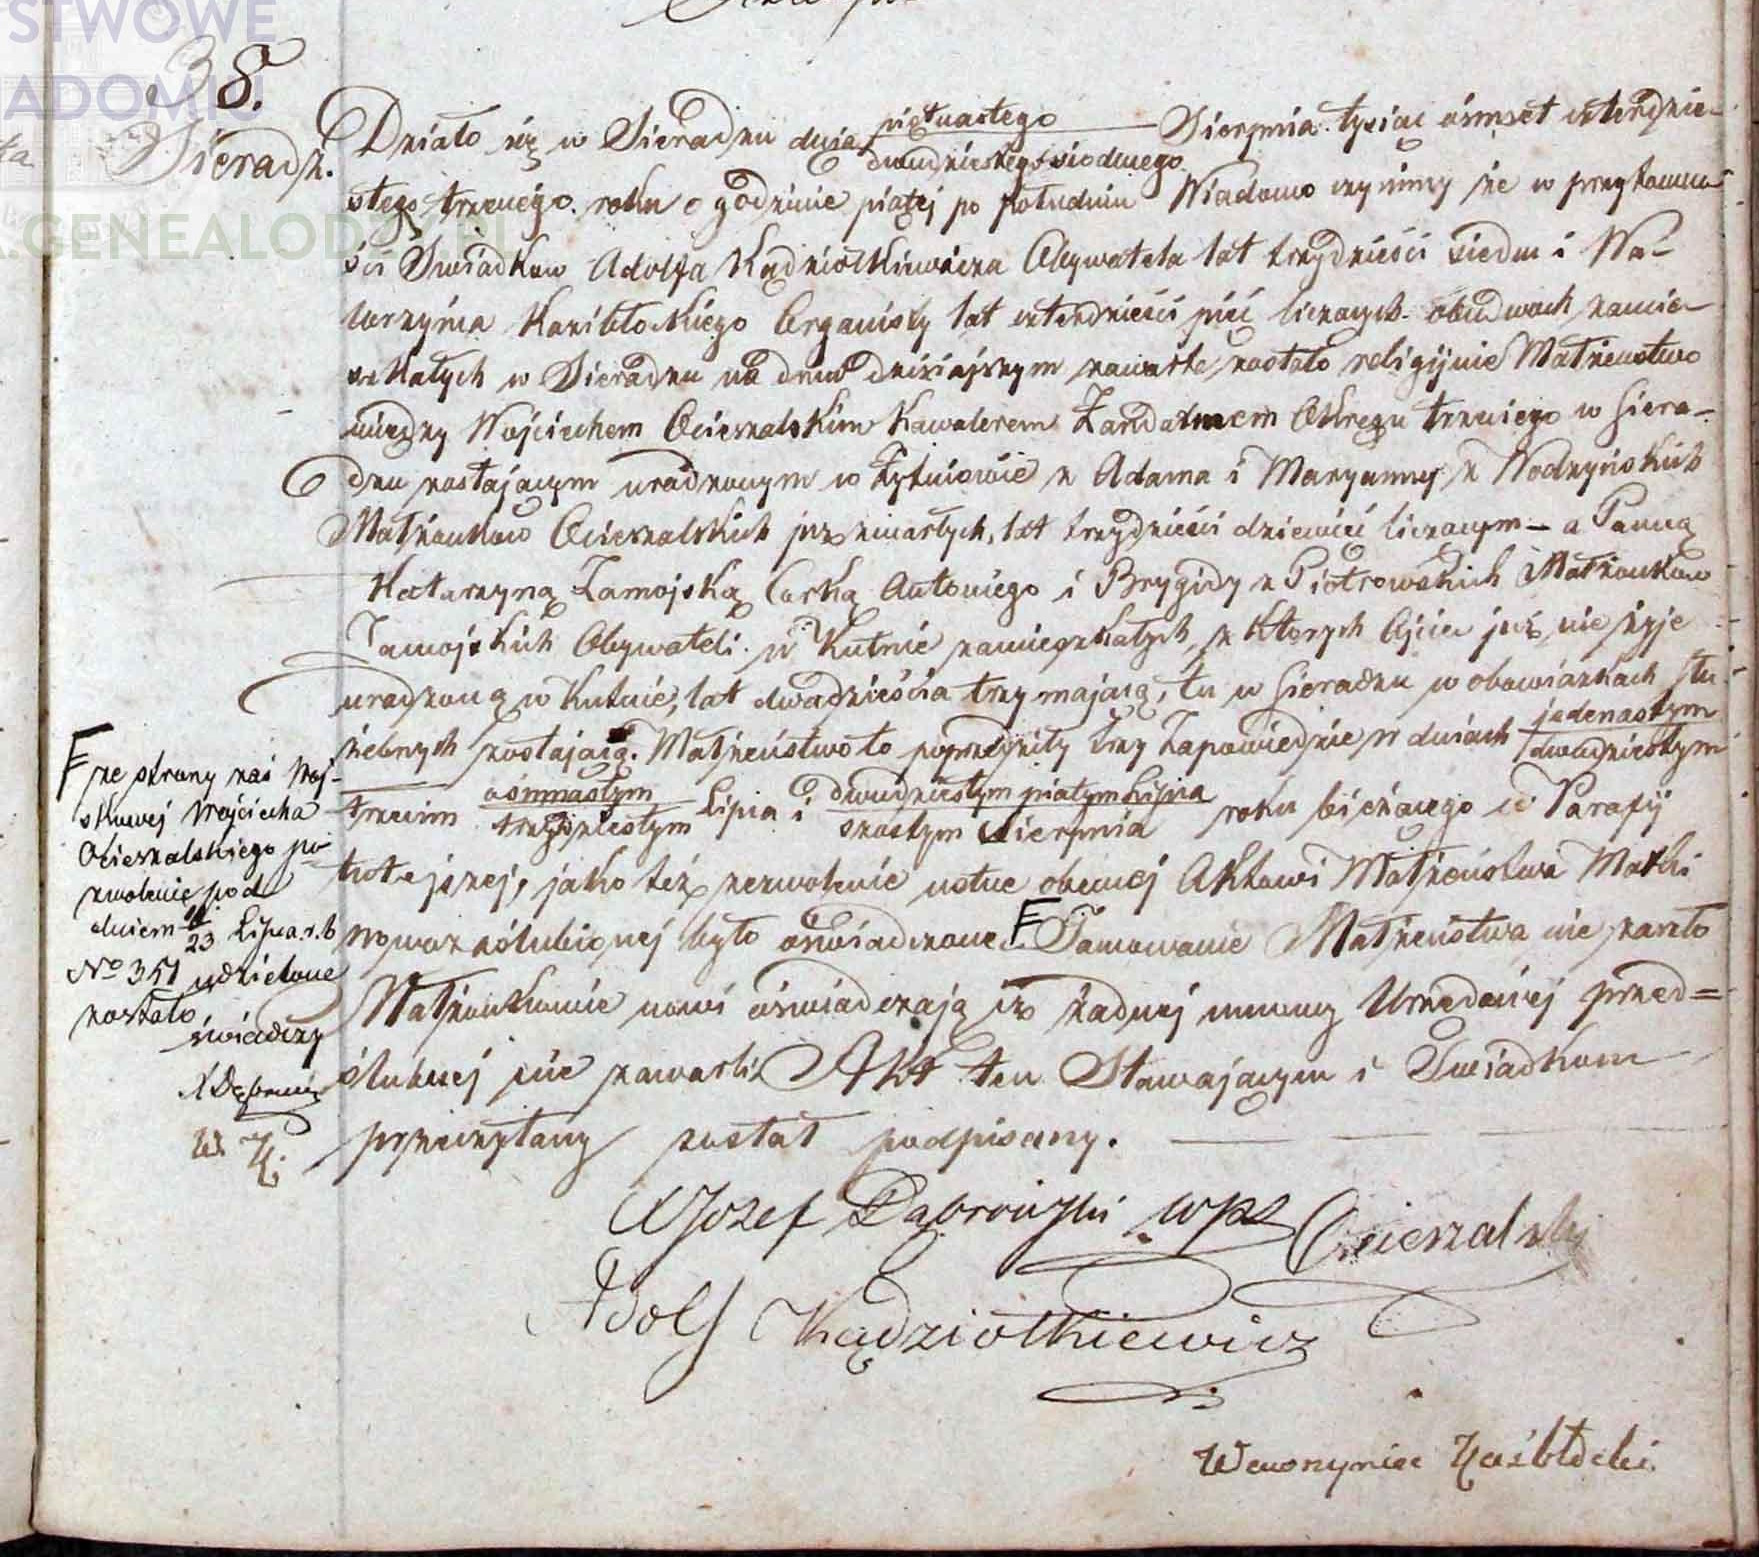 STWOWE
ADOMIU
A.GENEALODZY.PL
38.
Sieradz.
Działo się w Sieradzu dnia piętnastego / dwudziestego siódmego Sierpnia tysiąc ośmset czterdzie-
stego trzeciego roku o godzinie piątej po południu Wiadomo czynimy że w przytomno-
ści Swiadków Adolfa Kądziołkiewicza Obywatela lat trzydzieści siedm i Wa-
wrzyńca Organisty lat czterdzieści pięć liczących obudwóch zamie-
szkałych w Sieradzu na dniu dzisiejszym zawarte zostało religijnie Małżeństwo
między Wojciechem Ocieszalskim Kawalerem Żandarmem Okręgu trzeciego w Siera-
dzu zostającym urodzonym w Żytniowie z Adama i Maryanny z Wodzyńskich
Małżonków Ocieszalskich już zmarłych, lat trzydzieści dziewięć liczącym – a Panną
Katarzyną Zamojską Corką Antoniego i Brygidy z Piotrowskich Małżonków
Zamojskich Obywateli w Kutnie zamieszkałych, z których Ojciec już nie żyje
urodzoną w Kutnie, lat dwadzieścia trzy mającą, tu w Sieradzu w obowiązkach słu-
żebnych zostającą. Małżeństwo to poprzedziły trzy Zapowiedzie w dniach jedenastym / dwudziestym
trzecim ośmnastym / trzydziestym Lipca i dwudziestym piątym Lipca / szostym Sierpnia roku bieżącego w Parafij
tutejszej, jako też zezwolenie ustne obecnej Aktowi Małżeństwa Matki
nowozaślubionej było oświadczone. F Tamowanie Małżeństwa nie zaszło
Małżonkowie nowi oświadczają iż żadnej umowy Urzędowej przed=
ślubnej nie zawarli. Akt ten Stawającym i Swiadkom
przeczytany został podpisany.
F ze strony zaś Woj-
skowej Wojciecha
Ocieszalskiego po-
zwolenie pod
dniem 11/23 Lipca r. b
No 351 udzielone
zostało
świadczy
X Dąbrowski
W K.
X Jozef Dąbrowski wps Ocieszalski
Adolf Kądziołkiewicz
Wawrzyniec